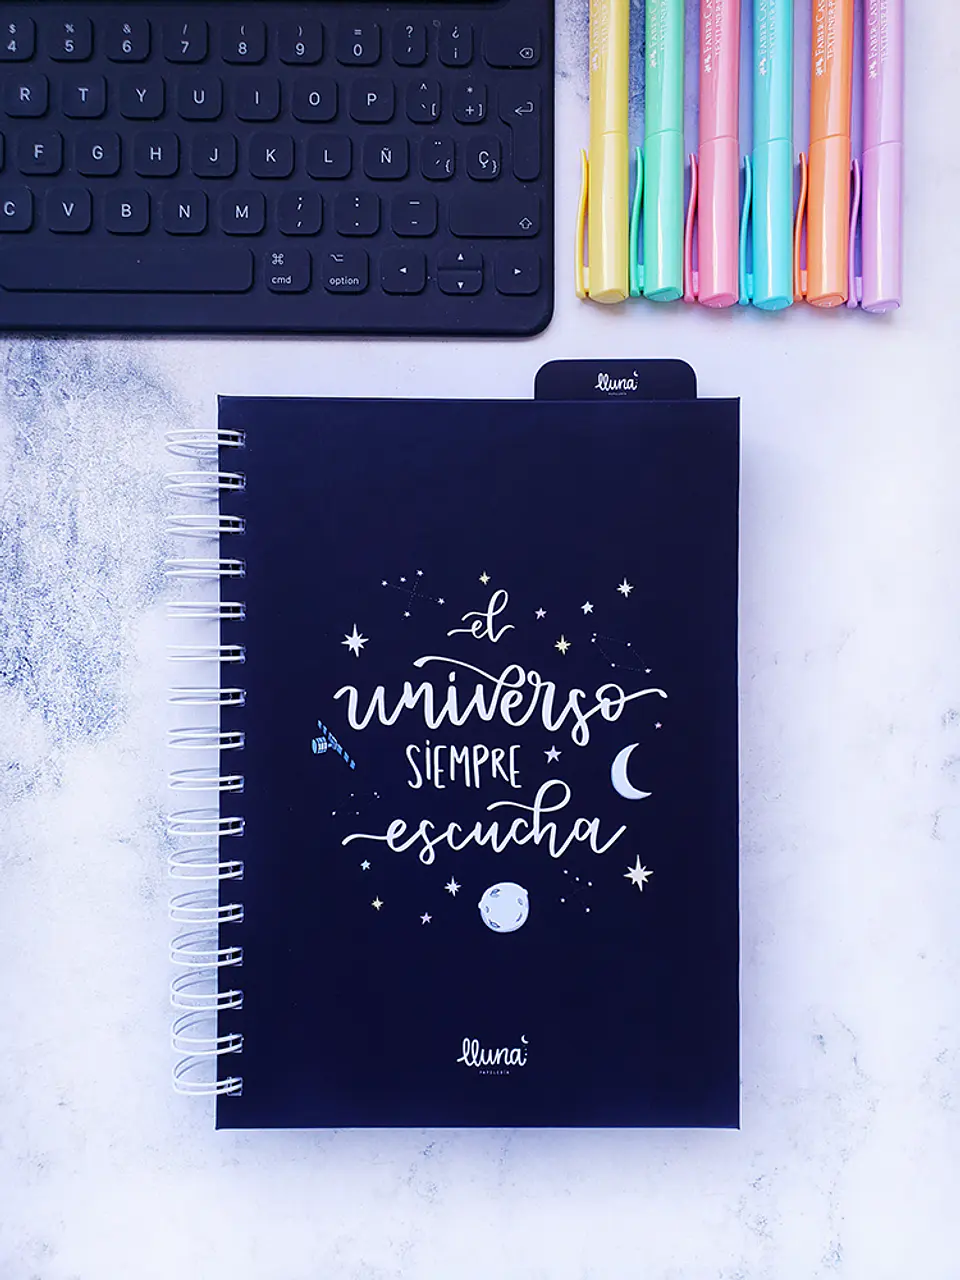 $ % & / ( ) = ? ¿
4 5 6 7 8 9 0 ' ¡
R T Y U I O P ^ ` [ * + ]
F G H J K L Ñ ¨ ´ { Ç }
C V B N M ; , : . _ -
cmd option
FABER-CASTELL
TEXTLINER
FABER-CASTELL
TEXTLINER
FABER-CASTELL
TEXTLINER
FABER-CAST
lluna
PAPELERÍA
el
universo
SiEMPRE
escucha
lluna
PAPELERÍA